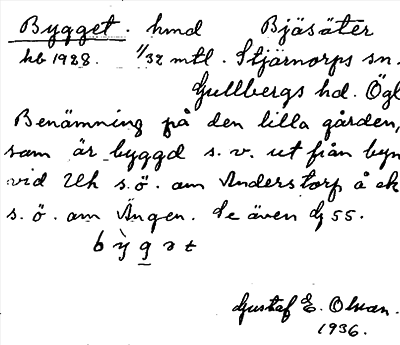 Bygget. hmd Bjäsäter
hb 1928. 1/32 mtl. Stjärnorps sn.
Gullbergs hd. Ögl
Benämning på den lilla gården,
som är byggd s. v. ut från byn
vid Uh s.ö. om Anderstorp å ek
s. ö. om Ängen. Se även 55.
bygət
Gustaf E. Olson.
1936.